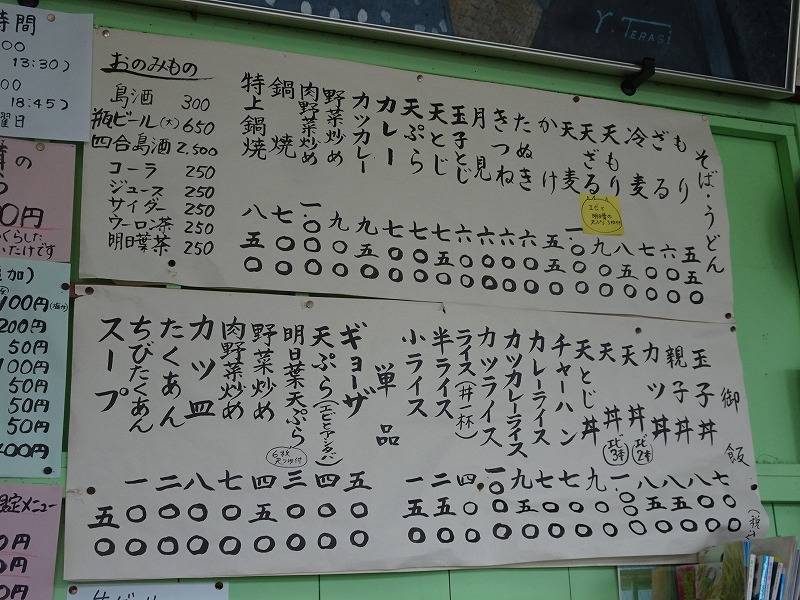 時間
00
13:30)
00
18:45)
曜日
00円
くらした
いたけです
追加)
100円
200円
50円
100円
50円
50円
50円
400円
限定メニュー
0円
0円
0円
y. TERASI
おのみもの
島酒 300
瓶ビール(大) 650
四合島酒 2,500
コーラ 250
ジュース 250
サイダー 250
ウーロン茶 250
明日葉茶 250
そば・うどん
もり 五五〇
ざる 六〇〇
冷麦 七〇〇
天もり 八五〇
天ざる 九〇〇
エビと
明日葉の
天麦 一、〇〇〇
かけ 五五〇
たぬき 六〇〇
きつね 六〇〇
月見 六〇〇
玉子とじ 六五〇
天とじ 七五〇
天ぷら 七〇〇
カレー 七〇〇
カツカレー 九五〇
野菜炒め 九〇〇
肉野菜炒め 一、〇〇〇
鍋焼 七〇〇
特上鍋焼 八五〇
御飯
玉子丼 七〇〇
親子丼 八〇〇
カツ丼 八五〇
天丼(エビ2本) 八五〇
天丼(エビ3本) 一、〇〇〇
天とじ丼 九〇〇
チャーハン 七〇〇
カレーライス 七〇〇
カツカレーライス 九五〇
カツライス 一、〇〇〇
ライス(丼一杯) 四〇〇
半ライス 二五〇
小ライス 一五〇
単品
ギョーザ 五〇〇
天ぷら(エビとアシタバ) 四〇〇
明日葉天ぷら 三〇〇
野菜炒め 四五〇
肉野菜炒め 七〇〇
カツ皿 八〇〇
たくあん 二〇〇
ちびたくあん 一〇〇
スープ 五〇